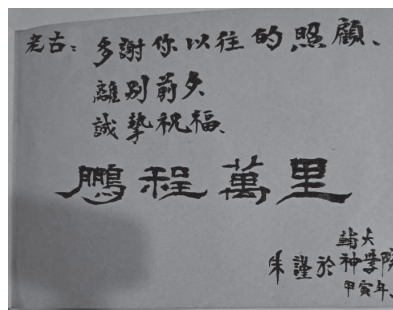 老古：多謝你以往的照顧、
離別前夕、
誠摯祝福、
鵬程萬里
輔大
朱謹於神學院
甲寅年、